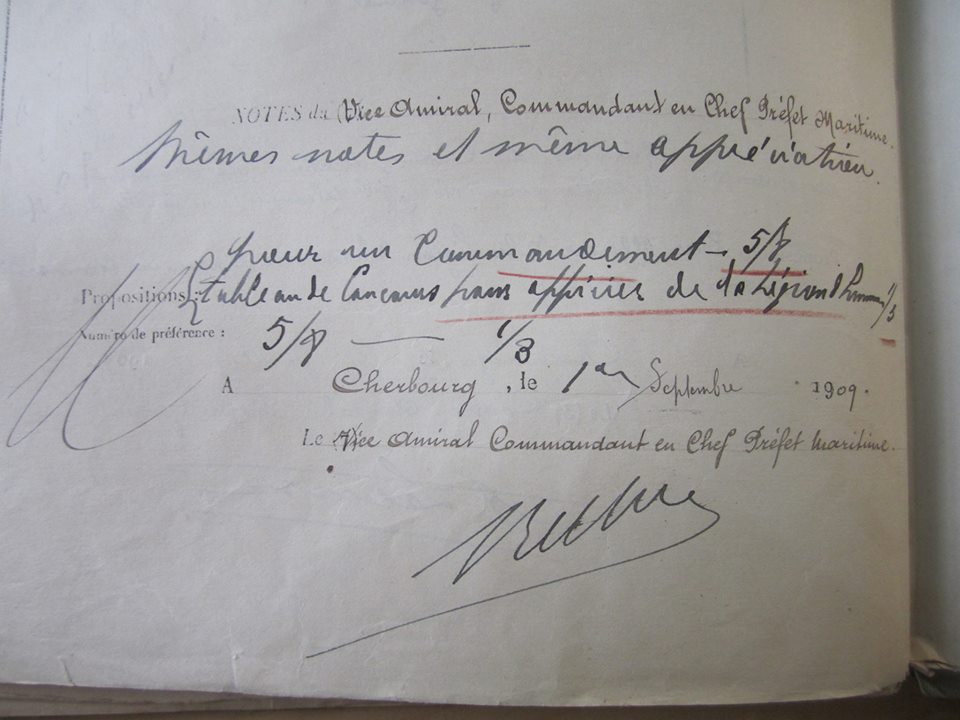 NOTES du Vice Amiral, Commandant en Chef Préfet Maritime.
Mêmes notes et même appréciation.
pour un Commandement — 5/8
Propositions : tableau de Concours pour officier de la Légion d'honneur 1/5
Numéro de préférence : 5/8 — 1/3
A Cherbourg, le 1er Septembre 1909.
Le Vice Amiral Commandant en Chef Préfet Maritime.